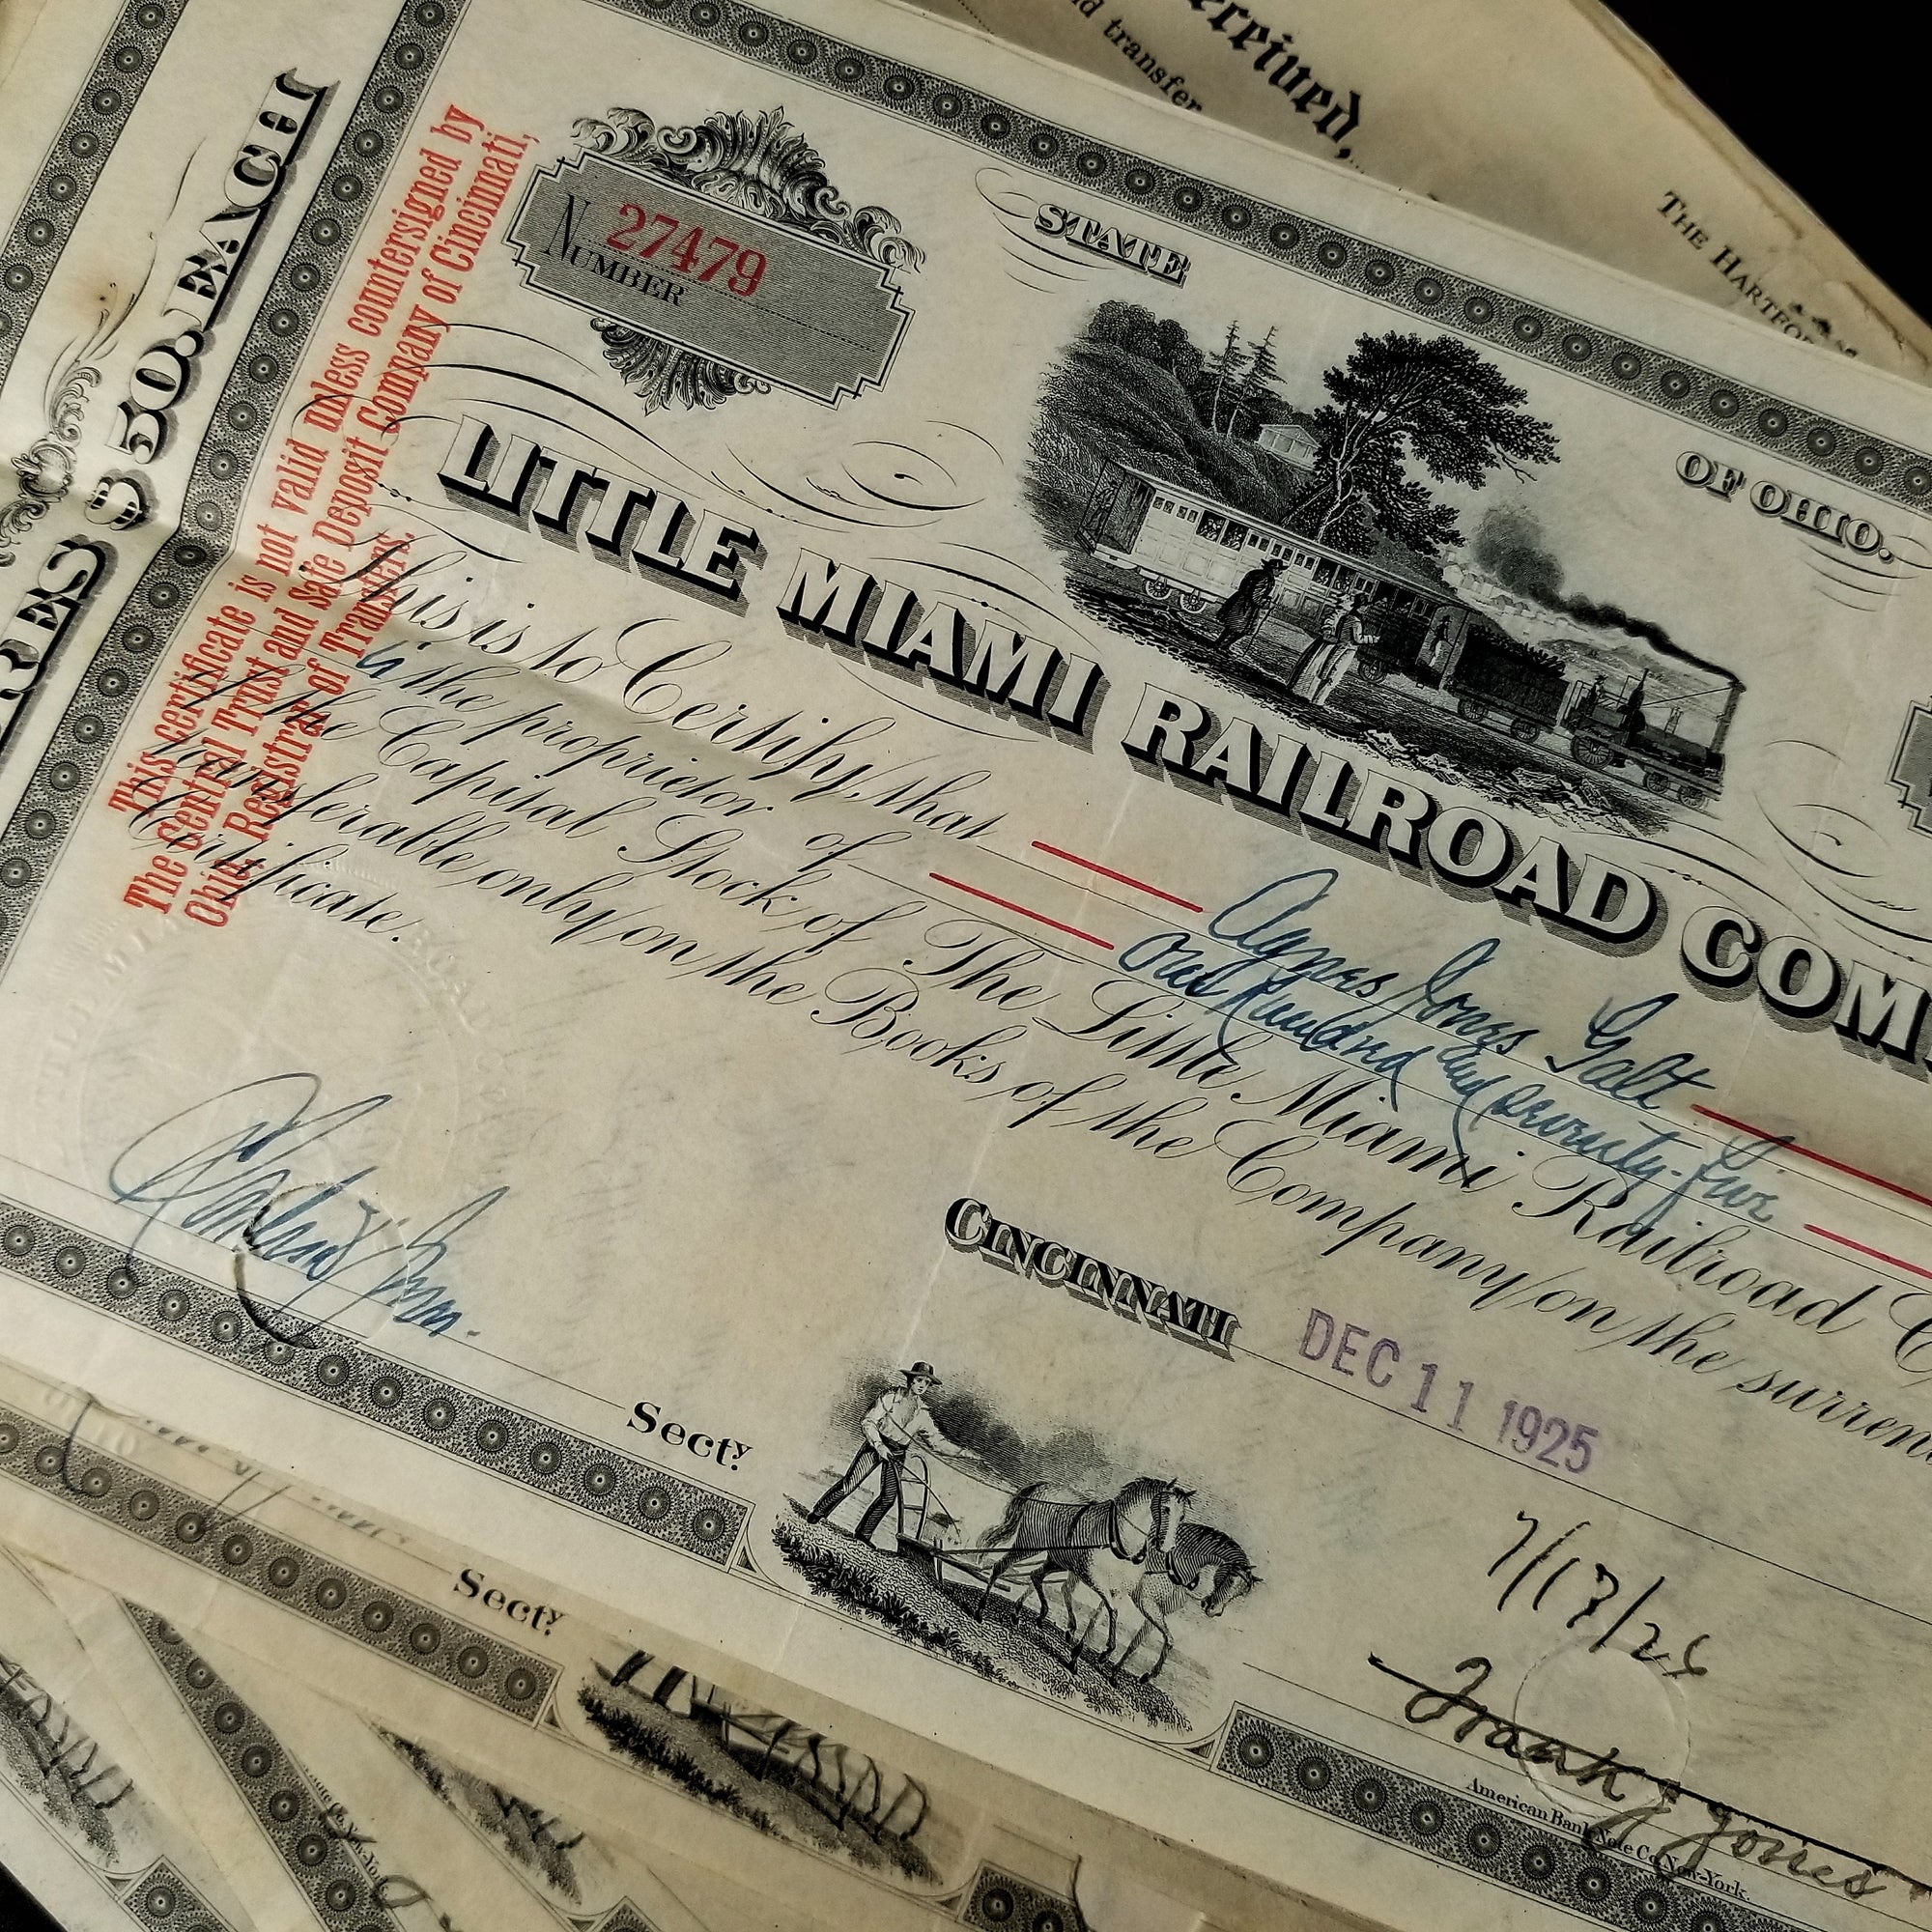 eceived,
d transfer
THE HARTFO
RES $50. EACH
This certificate is not valid unless countersigned by
The Central Trust and Safe Deposit Company of Cincinnati,
Ohio, Registrar of Transfers.
NUMBER 27479
STATE OF OHIO.
LITTLE MIAMI RAILROAD COM
This is to Certify, that Agnes Jones Galt
is the proprietor of One Hundred and seventy-five
of the Capital Stock of The Little Miami Railroad C
transferable only on the Books of the Company on the surren
Certificate.
CINCINNATI DEC 11 1925
Secty.
7/17/26
Frank J Jones
American Bank Note Co. New-York.
Secty.